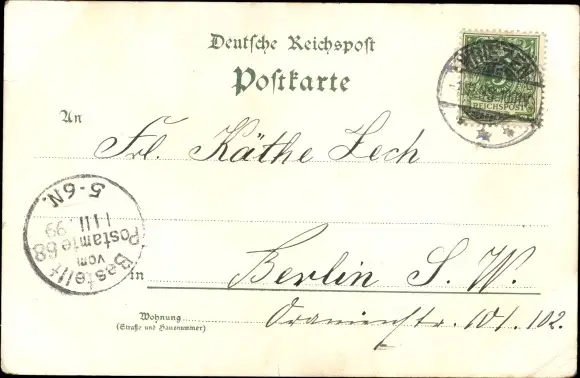 Deutsche Reichspost
Postkarte
5
REICHSPOST
An
Frl. Käthe Lech
Bestellt
vom
Postamte 68
1 11
99
5-6N.
in
Berlin S. W.
Oranienstr. 101. 102.
Wohnung
(Straße und Hausnummer)